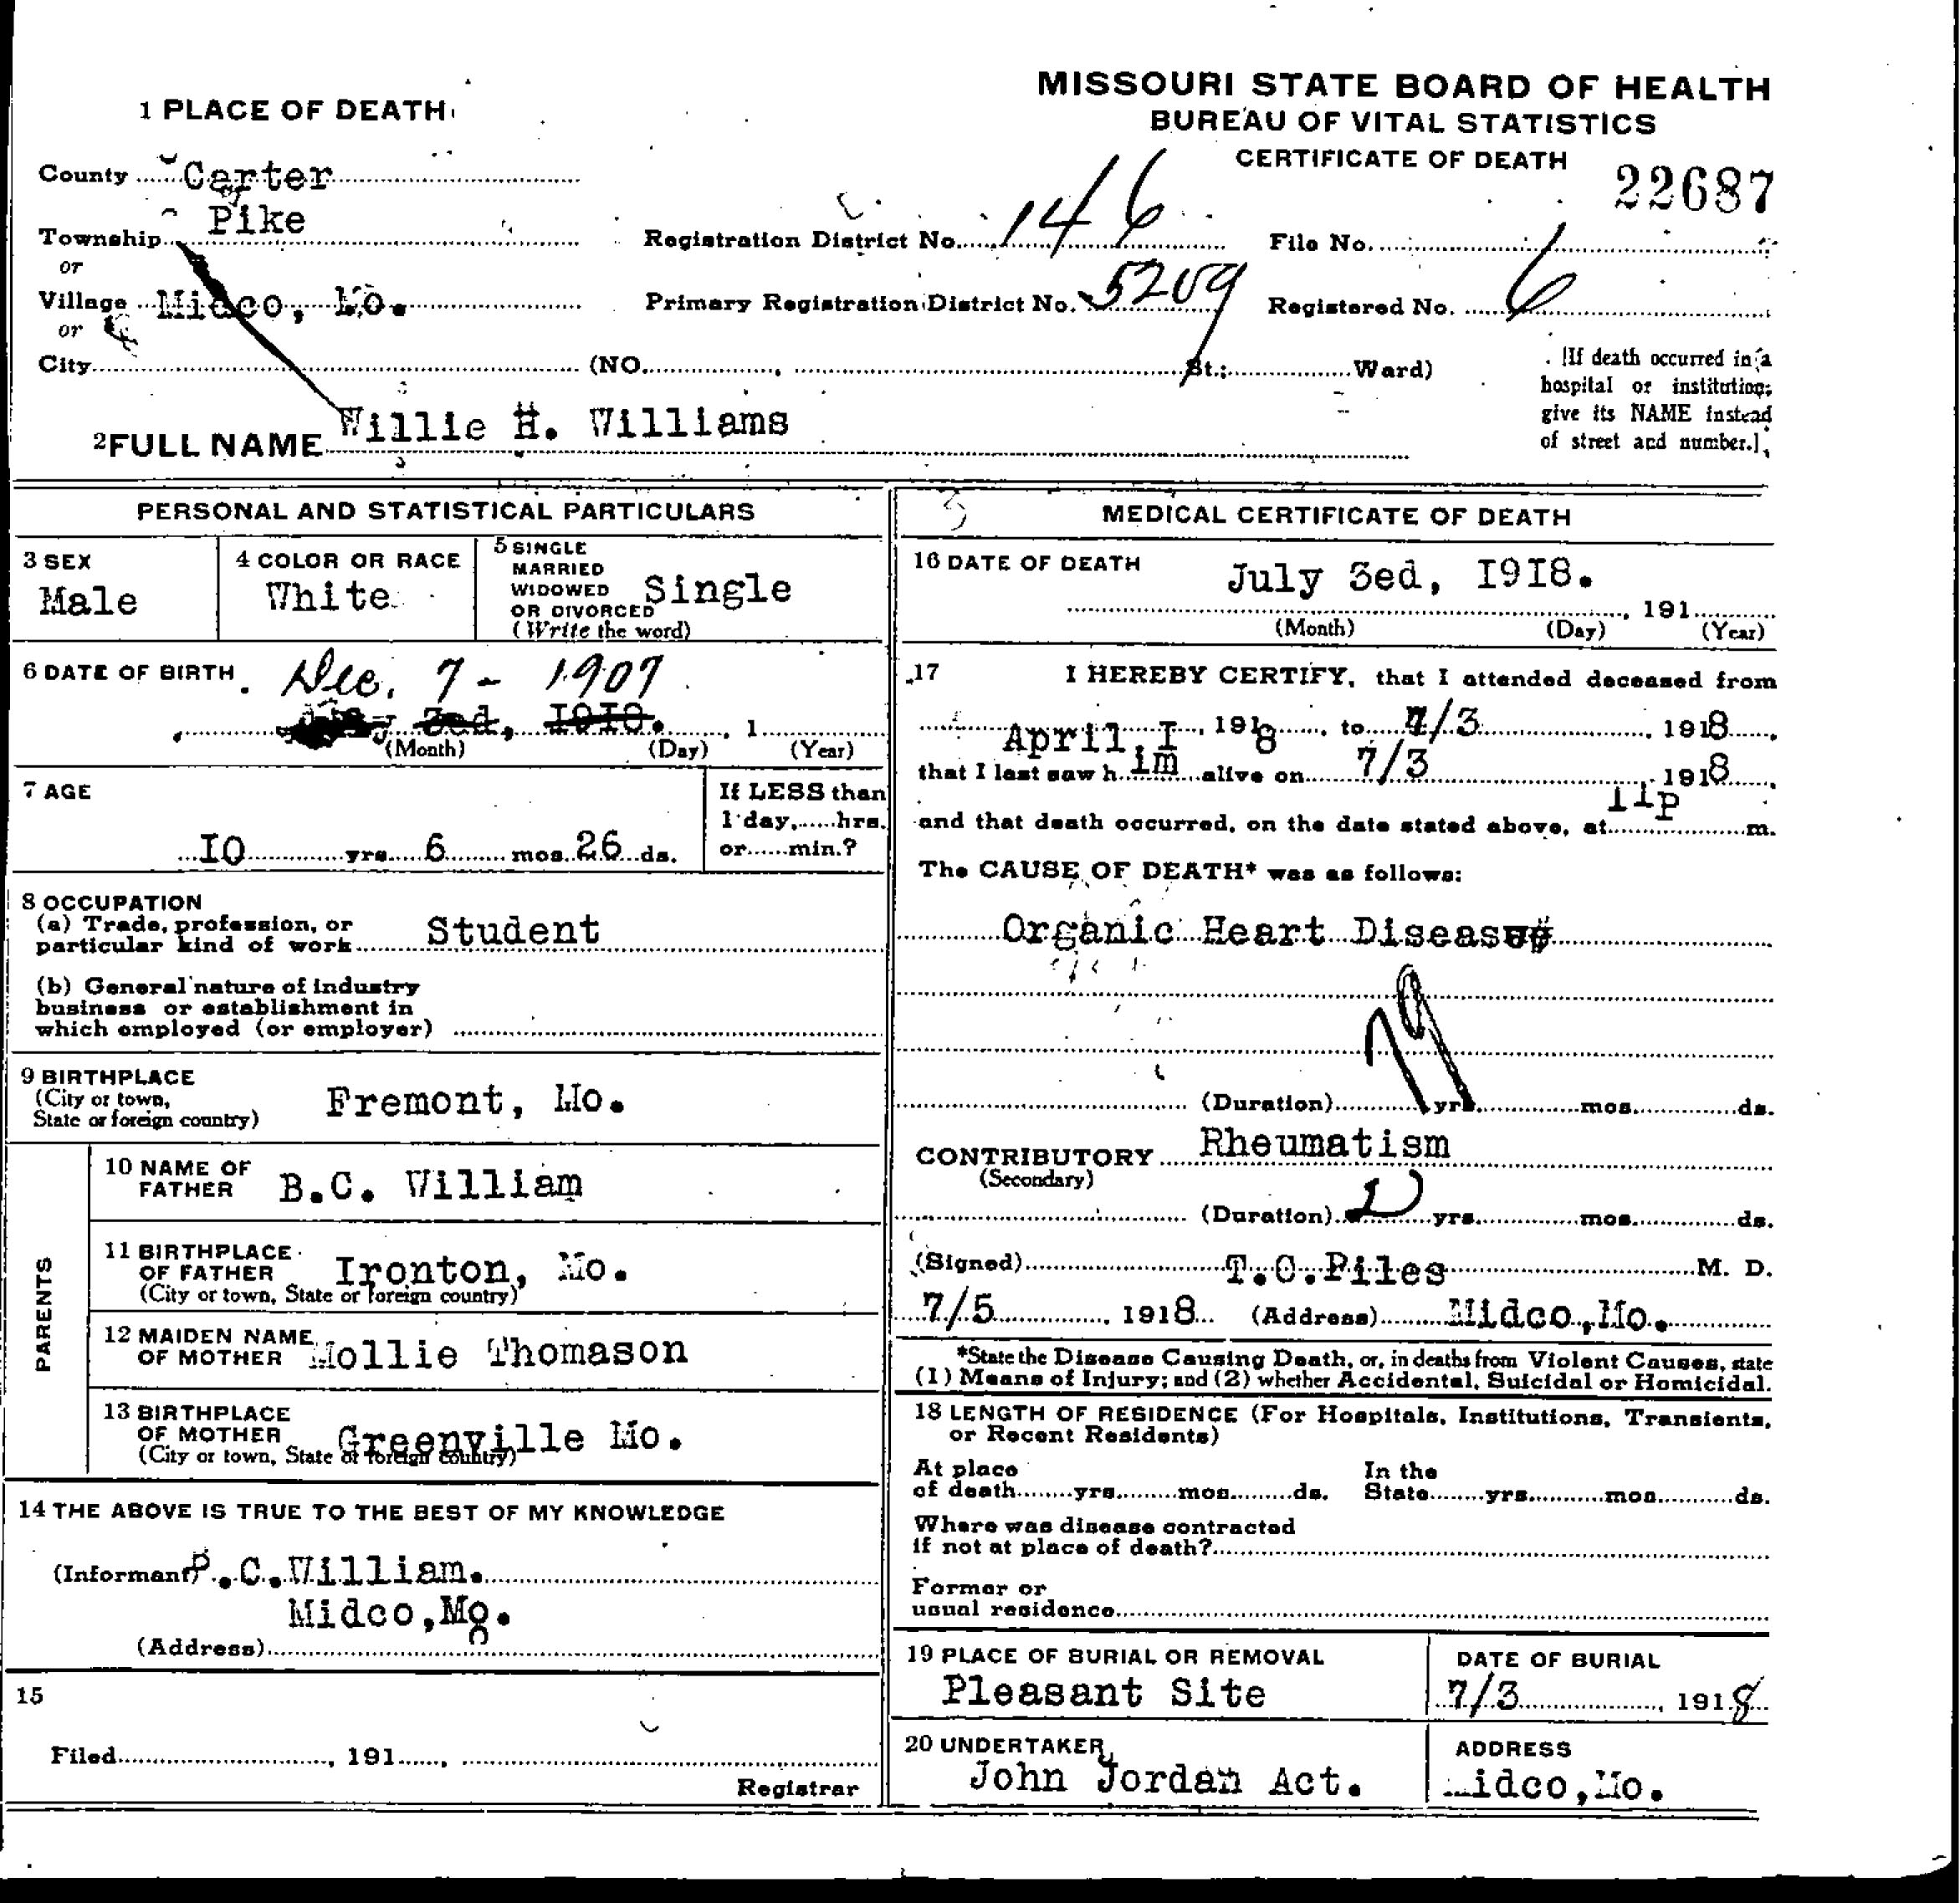 MISSOURI STATE BOARD OF HEALTH
BUREAU OF VITAL STATISTICS
CERTIFICATE OF DEATH
22687
1 PLACE OF DEATH
County Carter
Township Pike
or
Village Midco, Mo.
or
City (NO. , St.; Ward)
Registration District No. 146
File No.
Primary Registration District No. 5209
Registered No. 6
[If death occurred in a
hospital or institution;
give its NAME instead
of street and number.]
2 FULL NAME Willie H. Williams
PERSONAL AND STATISTICAL PARTICULARS
3 SEX
Male
4 COLOR OR RACE
White
5 SINGLE
MARRIED
WIDOWED
OR DIVORCED
(Write the word)
Single
6 DATE OF BIRTH Dec. 7 - 1907
3ed, I9I8. , 1
(Month) (Day) (Year)
7 AGE
I0 yrs. 6 mos. 26 ds.
If LESS than
1 day, hrs.
or min.?
8 OCCUPATION
(a) Trade, profession, or
particular kind of work Student
(b) General nature of industry
business or establishment in
which employed (or employer)
9 BIRTHPLACE
(City or town,
State or foreign country)
Fremont, Mo.
PARENTS
10 NAME OF
FATHER
B.C. William
11 BIRTHPLACE
OF FATHER
(City or town, State or foreign country)
Ironton, Mo.
12 MAIDEN NAME
OF MOTHER
Mollie Thomason
13 BIRTHPLACE
OF MOTHER
(City or town, State or foreign country)
Greenville Mo.
14 THE ABOVE IS TRUE TO THE BEST OF MY KNOWLEDGE
(Informant) .C.William.
Midco,Mo.
(Address)
15
Filed , 191 ,
Registrar
MEDICAL CERTIFICATE OF DEATH
16 DATE OF DEATH
July 3ed, I9I8.
, 191
(Month) (Day) (Year)
17 I HEREBY CERTIFY, that I attended deceased from
April I , 1918 , to 7/3 , 1918 ,
that I last saw h im alive on 7/3 , 1918 ,
and that death occurred, on the date stated above, at 11p m.
The CAUSE OF DEATH* was as follows:
Organic Heart Disease
(Duration) yrs. mos. ds.
CONTRIBUTORY Rheumatism
(Secondary)
(Duration) yrs. mos. ds.
(Signed) T.C.Piles M. D.
7/5 , 1918 (Address) Midco,Mo.
*State the Disease Causing Death, or, in deaths from Violent Causes, state
(1) Means of Injury; and (2) whether Accidental, Suicidal or Homicidal.
18 LENGTH OF RESIDENCE (For Hospitals, Institutions, Transients,
or Recent Residents)
At place
of death yrs. mos. ds.
In the
State yrs. mos. ds.
Where was disease contracted
if not at place of death?
Former or
usual residence
19 PLACE OF BURIAL OR REMOVAL
Pleasant Site
DATE OF BURIAL
7/3 , 1918
20 UNDERTAKER
John Jordan Act.
ADDRESS
Midco,Mo.